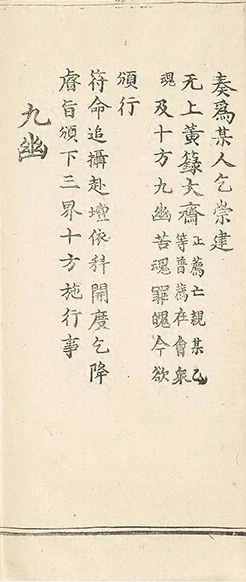 奏爲某人乞崇建
无上黃籙大齋正薦亡親某乙
等普薦在會衆
魂及十方九幽苦魂罪魄今欲
頒行
符命追攝赴壇依科開度乞降
睿旨頒下三界十方施行事
九幽